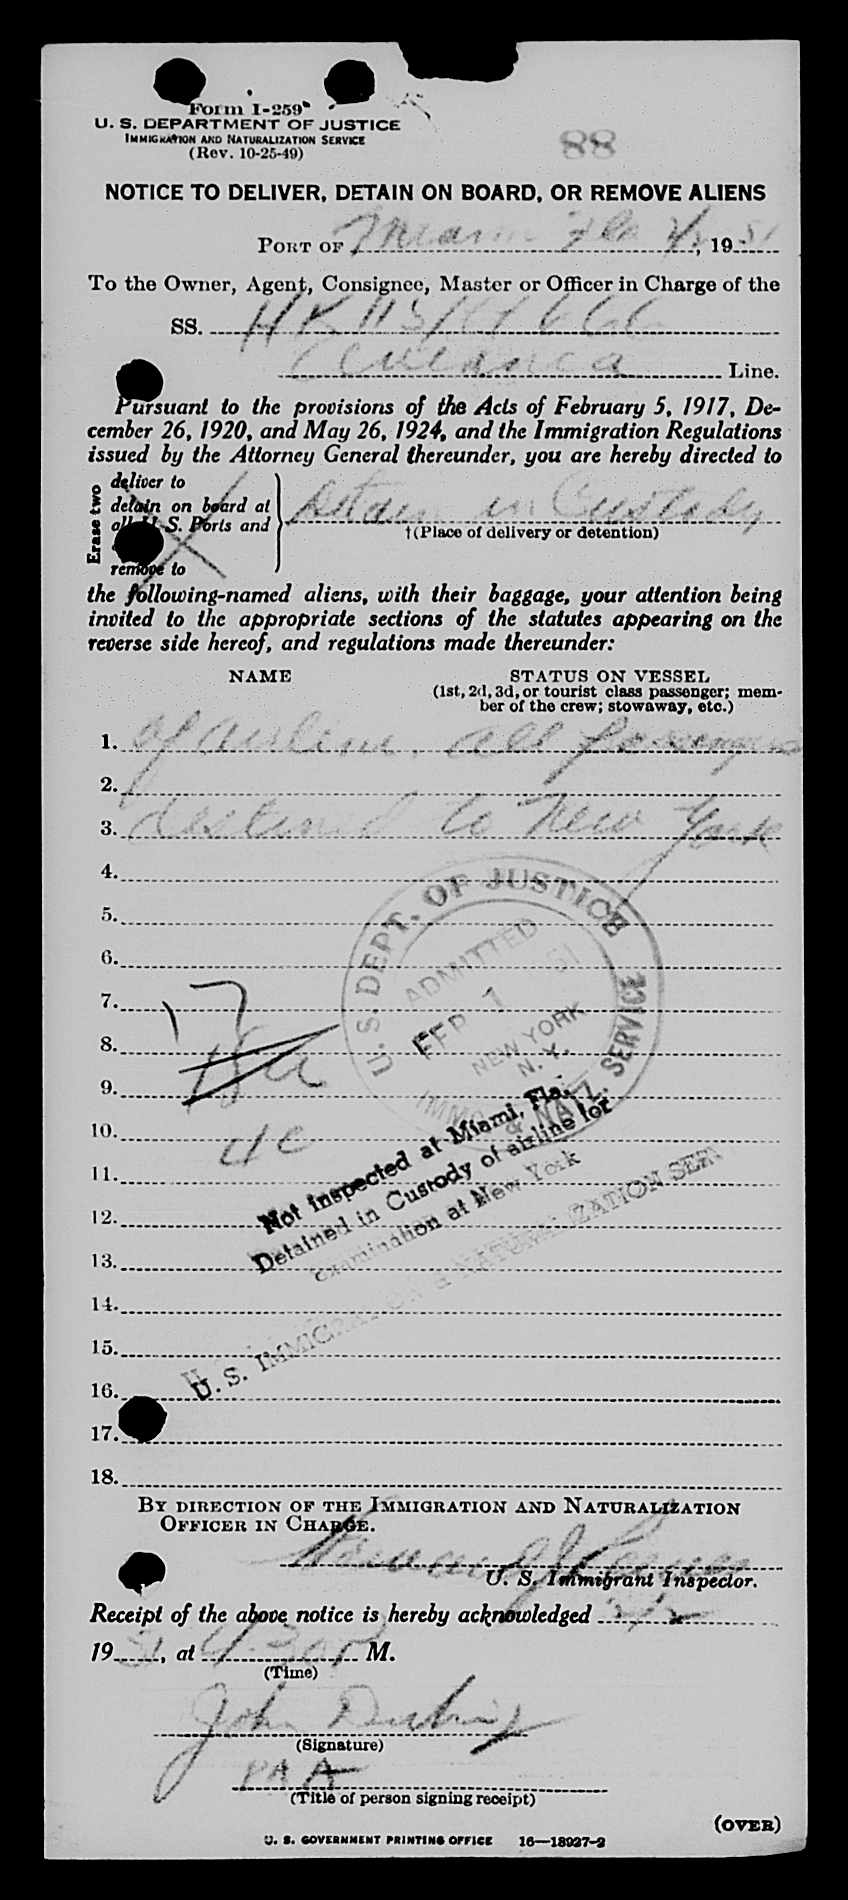 Form I-259
U. S. DEPARTMENT OF JUSTICE
IMMIGRATION AND NATURALIZATION SERVICE
(Rev. 10-25-49)
88
NOTICE TO DELIVER, DETAIN ON BOARD, OR REMOVE ALIENS
PORT OF Miami Fla 2/2, 19 51
To the Owner, Agent, Consignee, Master or Officer in Charge of the
SS. HK 115
Line.
Pursuant to the provisions of the Acts of February 5, 1917, De-
cember 26, 1920, and May 26, 1924, and the Immigration Regulations
issued by the Attorney General thereunder, you are hereby directed to
Erase two
deliver to
detain on board at
all U. S. Ports and
remove to
Detain in Custody
†(Place of delivery or detention)
the following-named aliens, with their baggage, your attention being
invited to the appropriate sections of the statutes appearing on the
reverse side hereof, and regulations made thereunder:
NAME
STATUS ON VESSEL
(1st, 2d, 3d, or tourist class passenger; mem-
ber of the crew; stowaway, etc.)
1. of airline. all passengers
2.
3. destined to New York
4.
5.
6.
7.
8.
9.
10.
11.
12.
13.
14.
15.
16.
17.
18.
U. S. DEPT. OF JUSTICE
ADMITTED
FEB 51
NEW YORK
N. Y.
IMMG. & NATZ. SERVICE
17
4C
Not inspected at Miami, Fla.
Detained in Custody of airline for
examination at New York
U. S. IMMIGRATION & NATURALIZATION SER
BY DIRECTION OF THE IMMIGRATION AND NATURALIZATION
OFFICER IN CHARGE.
U. S. Immigrant Inspector.
Receipt of the above notice is hereby acknowledged 2/2
19 51, at M.
(Time)
John
(Signature)
PAA
(Title of person signing receipt)
(OVER)
U. S. GOVERNMENT PRINTING OFFICE 16—18927-2